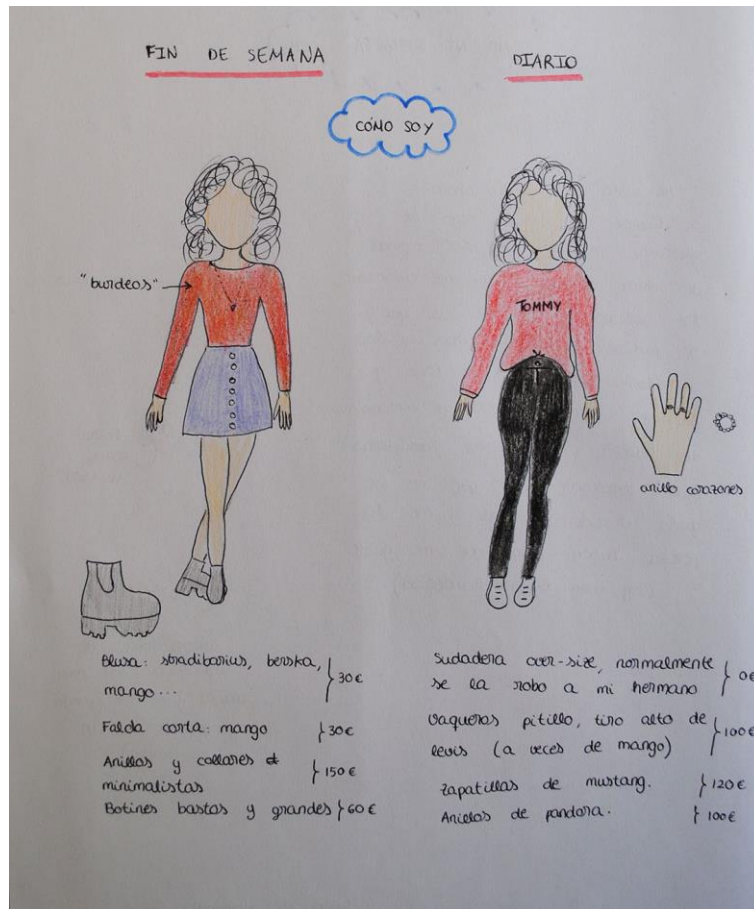 FIN DE SEMANA
DIARIO
CÓMO SOY
"burdeos"
TOMMY
anillo corazones
Blusa: stradibarius, berska,
mango...
} 30€
Falda corta: mango } 30€
Anillos y collares
minimalistas
} 150€
Botines bastos y grandes } 60€
Sudadera over-size, normalmente
se la robo a mi hermano
} 0€
vaqueros pitillo, tiro alto de
levis (a veces de mango)
} 100€
Zapatillas de mustang. } 120€
Anillos de pandora. } 100€